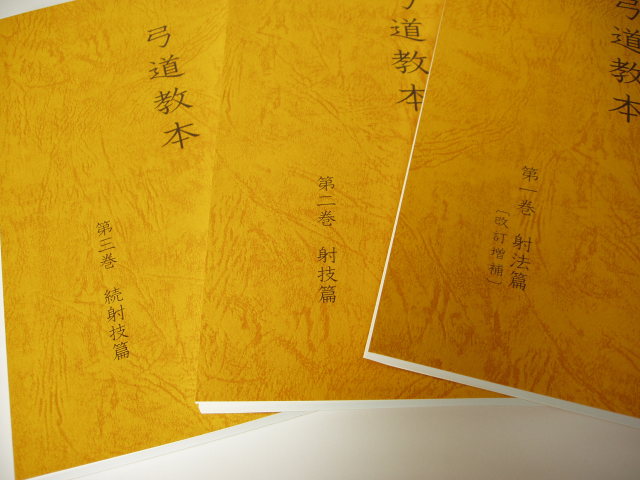 弓道教本
第三巻　続射技篇
弓道教本
第二巻　射技篇
弓道教本
第一巻　射法篇
〔改訂増補〕